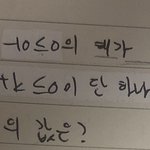 -10≤0의 해가
+k≤0이 단 하나
의 값은?